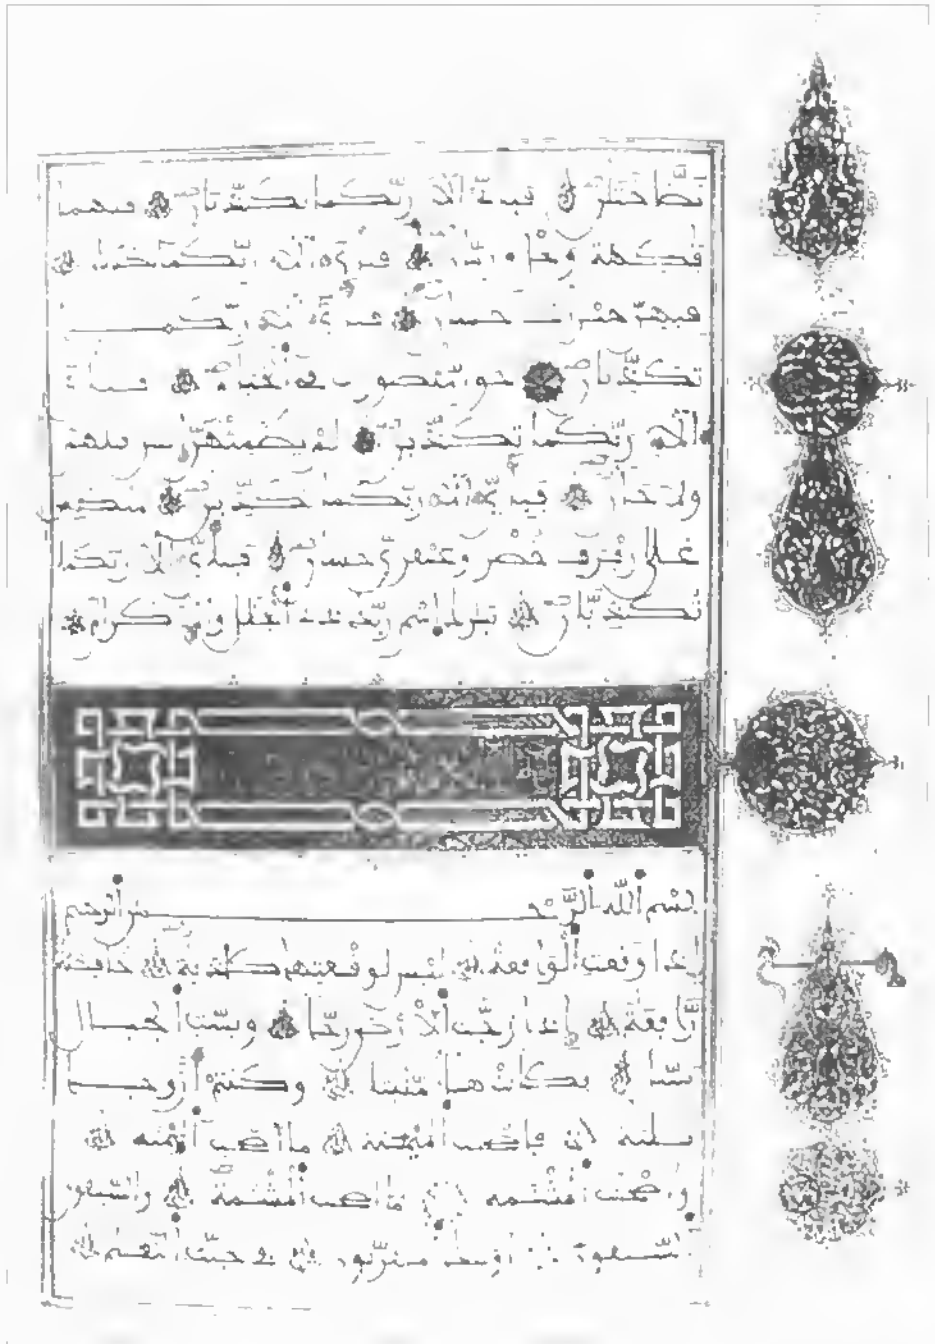 نضاختن فبأي آلاء ربكما تكذبان فيهما
فكهة ونخل ورمان فبأي آلاء ربكما تكذبان
فيهن خيرات حسان فبأي آلاء ربكما
تكذبان حور مقصورت في الخيام فبأي
آلاء ربكما تكذبان لم يطمثهن إنس قبلهم
ولا جان فبأي آلاء ربكما تكذبان متكئين
على رفرف خضر وعبقري حسان فبأي آلاء ربكما
تكذبان تبرك اسم ربك ذي الجلل والإكرام
بسم الله الرحمن الرحيم
إذا وقعت الواقعة ليس لوقعتها كاذبة خافضة
رافعة إذا رجت الأرض رجا وبست الجبال
بسا فكانت هباء منبثا وكنتم أزوجا
ثلثة فأصحب الميمنة ما أصحب الميمنة
وأصحب المشئمة ما أصحب المشئمة والسبقون
السبقون أولئك المقربون في جنت النعيم